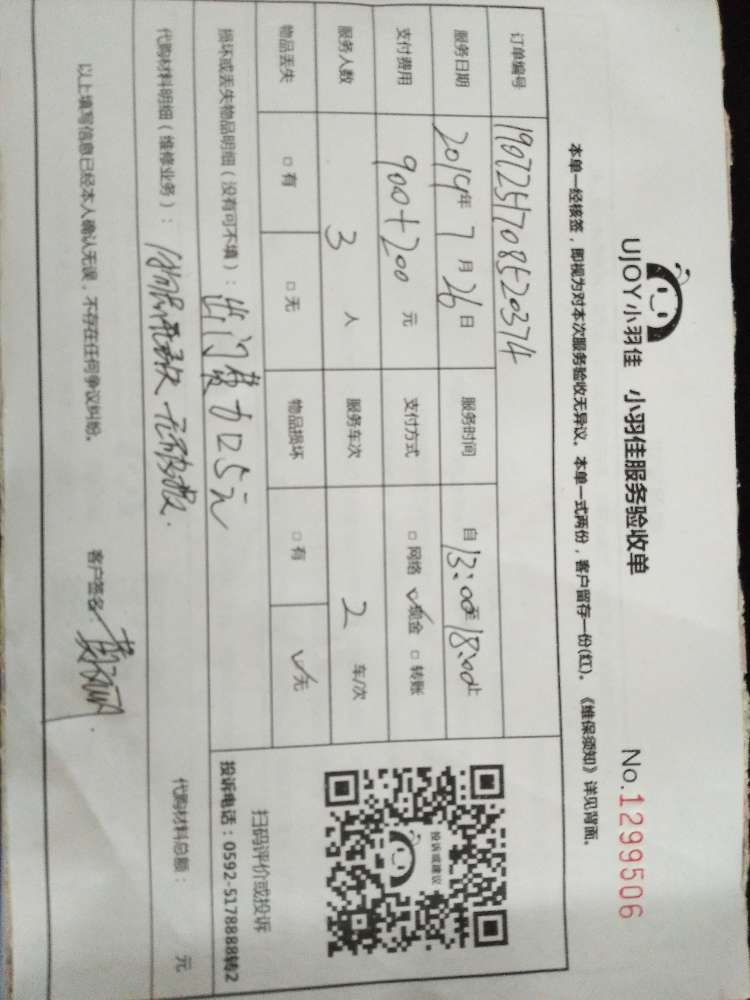 UJOY小羽佳 小羽佳服务验收单 No.1299506
本单一经核签，即视为对本次服务验收无异议。本单一式两份，客户留存一份(红)。《维保须知》详见背面。
订单编号
服务日期 2019年7月26日 服务时间 自13:00至18:00止
支付费用 900+200 元 支付方式 □网络 ✓现金 □转账
服务人数 3 人 服务车次 2 车/次
物品丢失 □有 □无 物品损坏 □有 ✓无
损坏或丢失物品明细（没有可不填）： 出门费加口5元
代购材料明细（维修业务）： 物品完好 代购材料总额： 元
以上填写信息已经本人确认无误，不存在任何争议纠纷。 客户签名：
投诉或建议
扫码评价或投诉
投诉电话：0592-5178888转2